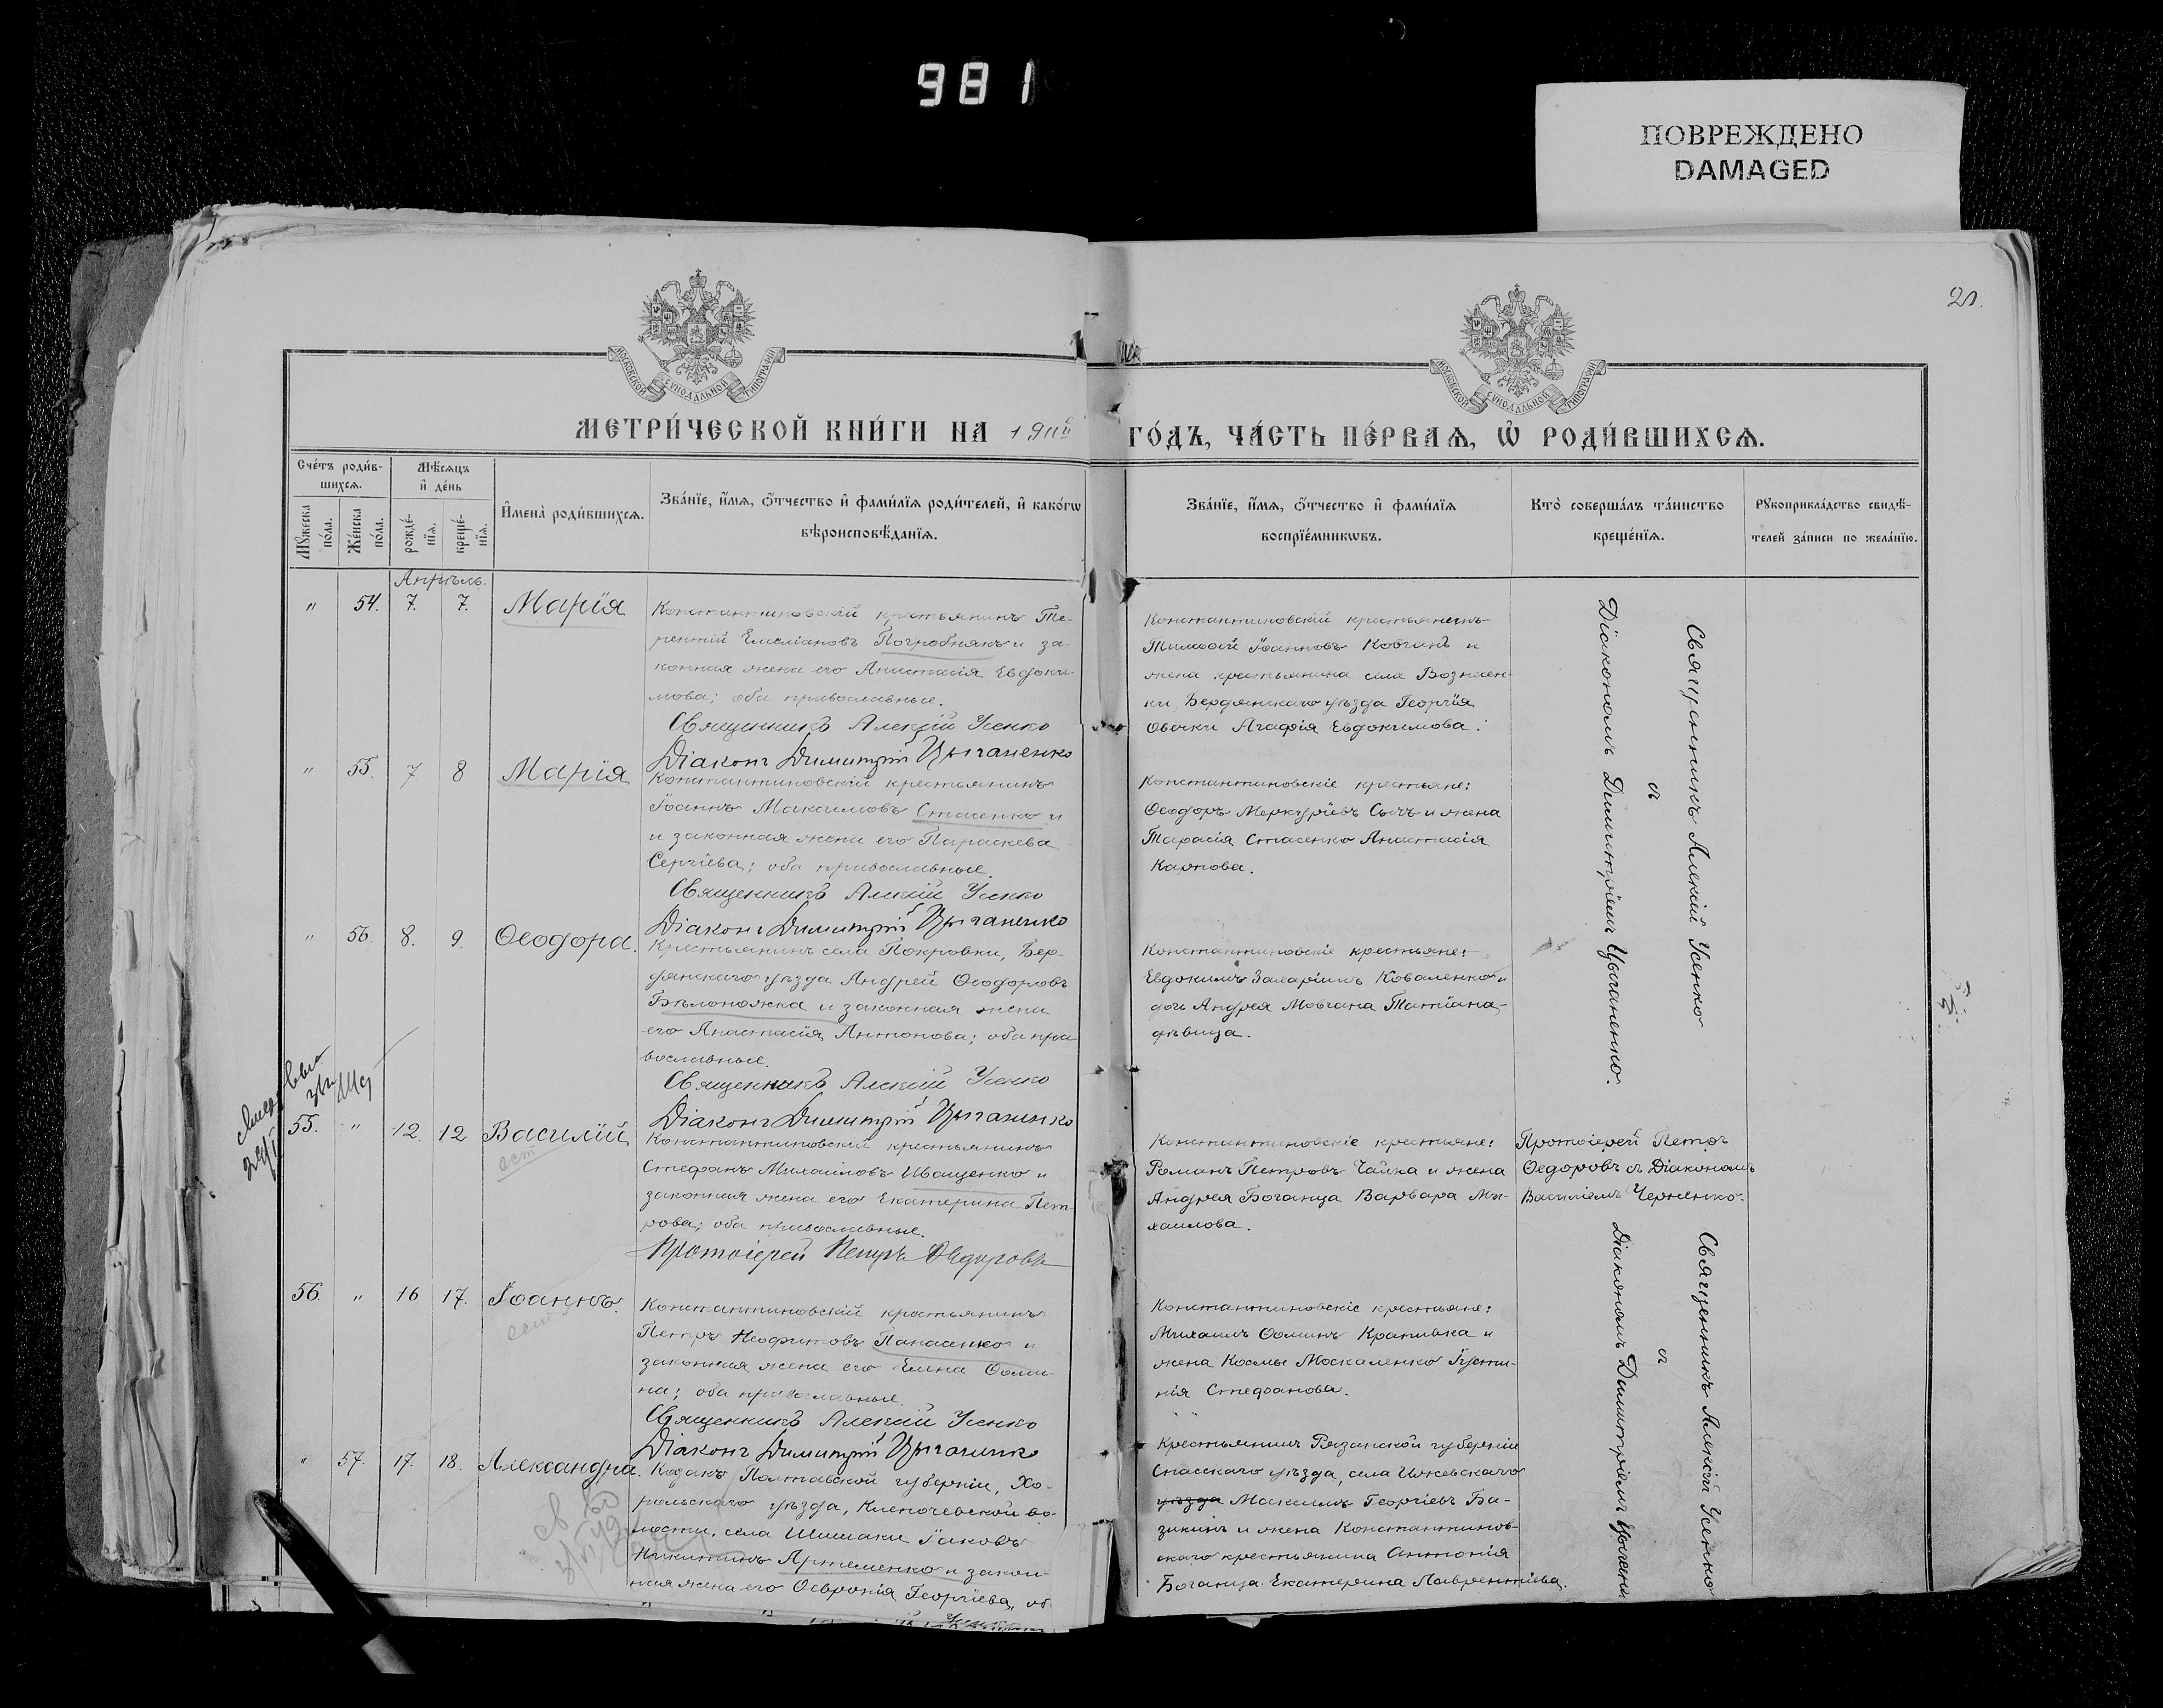 981
ПОВРЕЖДЕНО
DAMAGED
МОСКОВСКОЙ СѴНОДАЛЬНОЙ ТИПОГРАФІИ
МОСКОВСКОЙ СѴНОДАЛЬНОЙ ТИПОГРАФІИ
МЕТРИ́ЧЕСКОЙ КНИ́ГИ НА
ГО́ДЪ, ЧА́СТЬ ПЕ́РВАѦ, Ѡ РОДИ́ВШИХСѦ.
Сче́тъ роди́в-
шихсѧ.
Мꙋ́жеска
по́ла.
Же́нска
по́ла.
Мѣ́сѧцъ
и҆ де́нь
рожде́-
нїѧ.
креще́-
нїѧ.
И҆мена̀ роди́вшихсѧ.
Зва́нїе, и҆́мѧ, ѻ҆́тчество и҆ фами́лїѧ роди́телей, и҆ како́гѡ
вѣроисповѣ́данїѧ.
Зва́нїе, и҆́мѧ, ѻ҆́тчество и҆ фами́лїѧ
воспрїе́мникѡвъ.
Кто̀ соверша́лъ та́инство
креще́нїѧ.
Рꙋкоприкла́дство свидѣ́-
телей за́писи по жела́нїю.
Апрѣль.
" 54. 7. 7. Марія
Константиновскій крестьянинъ Те-
рентій Емеліановъ Погробнякъ и за-
конная жена его Анастасія Евдоки-
мова; оба православные.
Священникъ Алексій Усенко
Діаконъ Димитрій Цыганенко
Константиновскій крестьянинъ
Тимофей Іоанновъ Ковганъ и
жена крестьянина села Вознесен-
ки, Бердянскаго уѣзда Георгія
Овечки Агафія Евдокимова.
Священникъ Алексій Усенко
съ
Діакономъ Димитріемъ Цыганенко.
" 55. 7 8 Марія
Константиновскій крестьянинъ
Іоаннъ Максимовъ Стасенко и
и законная жена его Параскева
Сергіева; оба православные.
Священникъ Алексій Усенко
Діаконъ Димитрій Цыганенко
Константиновскіе крестьяне:
Ѳеодоръ Меркуріевъ Сычъ и жена
Тарасія Стасенко Анастасія
Карпова.
" 56. 8. 9. Ѳеодора.
Крестьянинъ села Покровки, Бер-
дянскаго уѣзда Андрей Ѳеодоровъ
Бѣлоножка и законная жена
его Анастасія Антонова; оба пра
вославные.
Священникъ Алексій Усенко
Діаконъ Димитрій Цыганенко
Константиновскіе крестьяне:
Евдокимъ Захаріинъ Коваленко и
дочь Андрея Мовчана Татіана-
дѣвица.
55. " 12 12 Василій
Константиновскій крестьянинъ
Стефанъ Михаиловъ Иващенко и
законная жена его Екатерина Пет-
рова; оба православные.
Протоіерей Петръ Ѳедоровъ
Константиновскіе крестьяне:
Романъ Петровъ Чайка и жена
Андрея Боганца Варвара Ми-
хаилова.
Протоіерей Петръ
Ѳедоровъ съ Діакономъ
Василіемъ Черненко.
56. " 16 17. Іоаннъ.
Константиновскій крестьянинъ
Петръ Неофитовъ Панасенко и
законная жена его Елена Ѳоми-
на; оба православные.
Священникъ Алексій Усенко
Діаконъ Димитрій Цыганенко
Константиновскіе крестьяне:
Михаилъ Ѳоминъ Крапивка и
жена Космы Москаленко Іусти-
нія Стефанова.
Священникъ Алексій Усенко
съ
Діакономъ Димитріемъ
" 57. 17. 18. Александра.
Козакъ Полтавской губерніи, Хо-
рольскаго уѣзда, Кленочевской во-
лости, села Шишаки Іаковъ
Никитинъ Артеменко и закон-
ная жена его Ѳевронія Георгіева, об
Крестьянинъ Рязанской губерніи
Спасскаго уѣзда, села Ижевскаго
уѣзда Максимъ Георгіевъ Ба-
зикинъ и жена Константинов-
скаго крестьянина Антонія
Боганца Екатерина Лаврентіева.